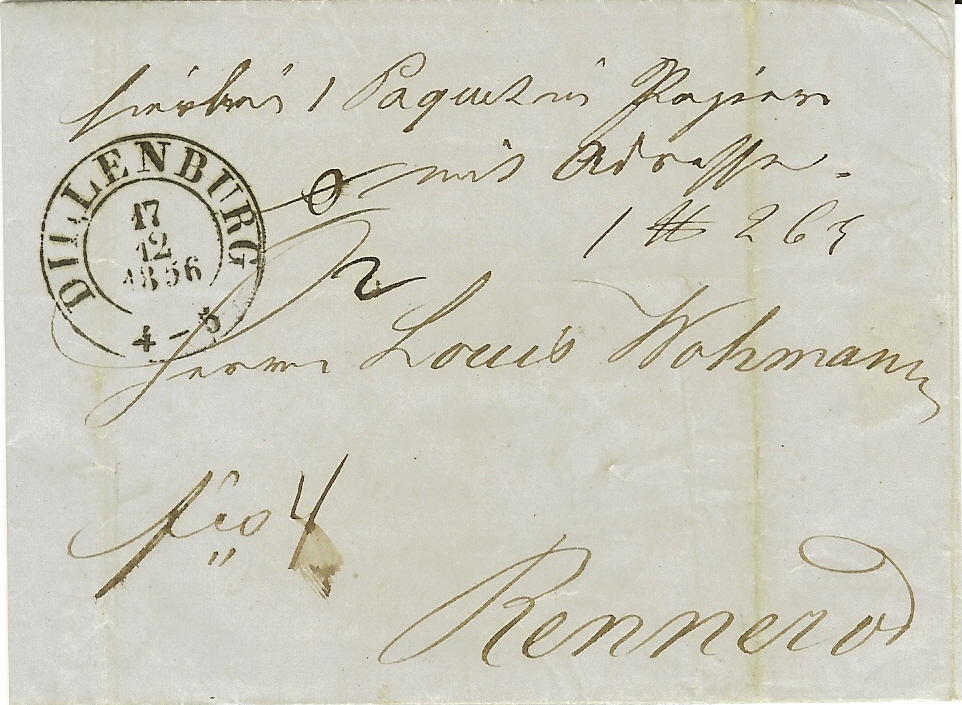 hierbei 1 Paquet in Papier
mit Adresse.
DILLENBURG
17
12
1856
4 - 5
1 ℔ 263
2
Herrn Louis Wohmann
fco 4
Rennerod